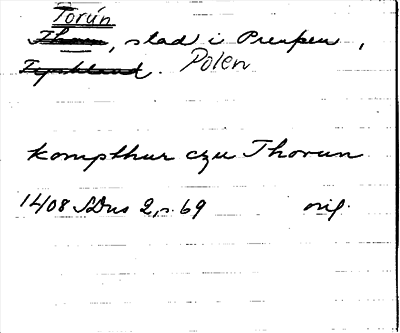 Torún
Thorn, stad i Preussen,
Tyskland. Polen
kompthur czu Thorun
1408 SDns 2, s. 69 orig.